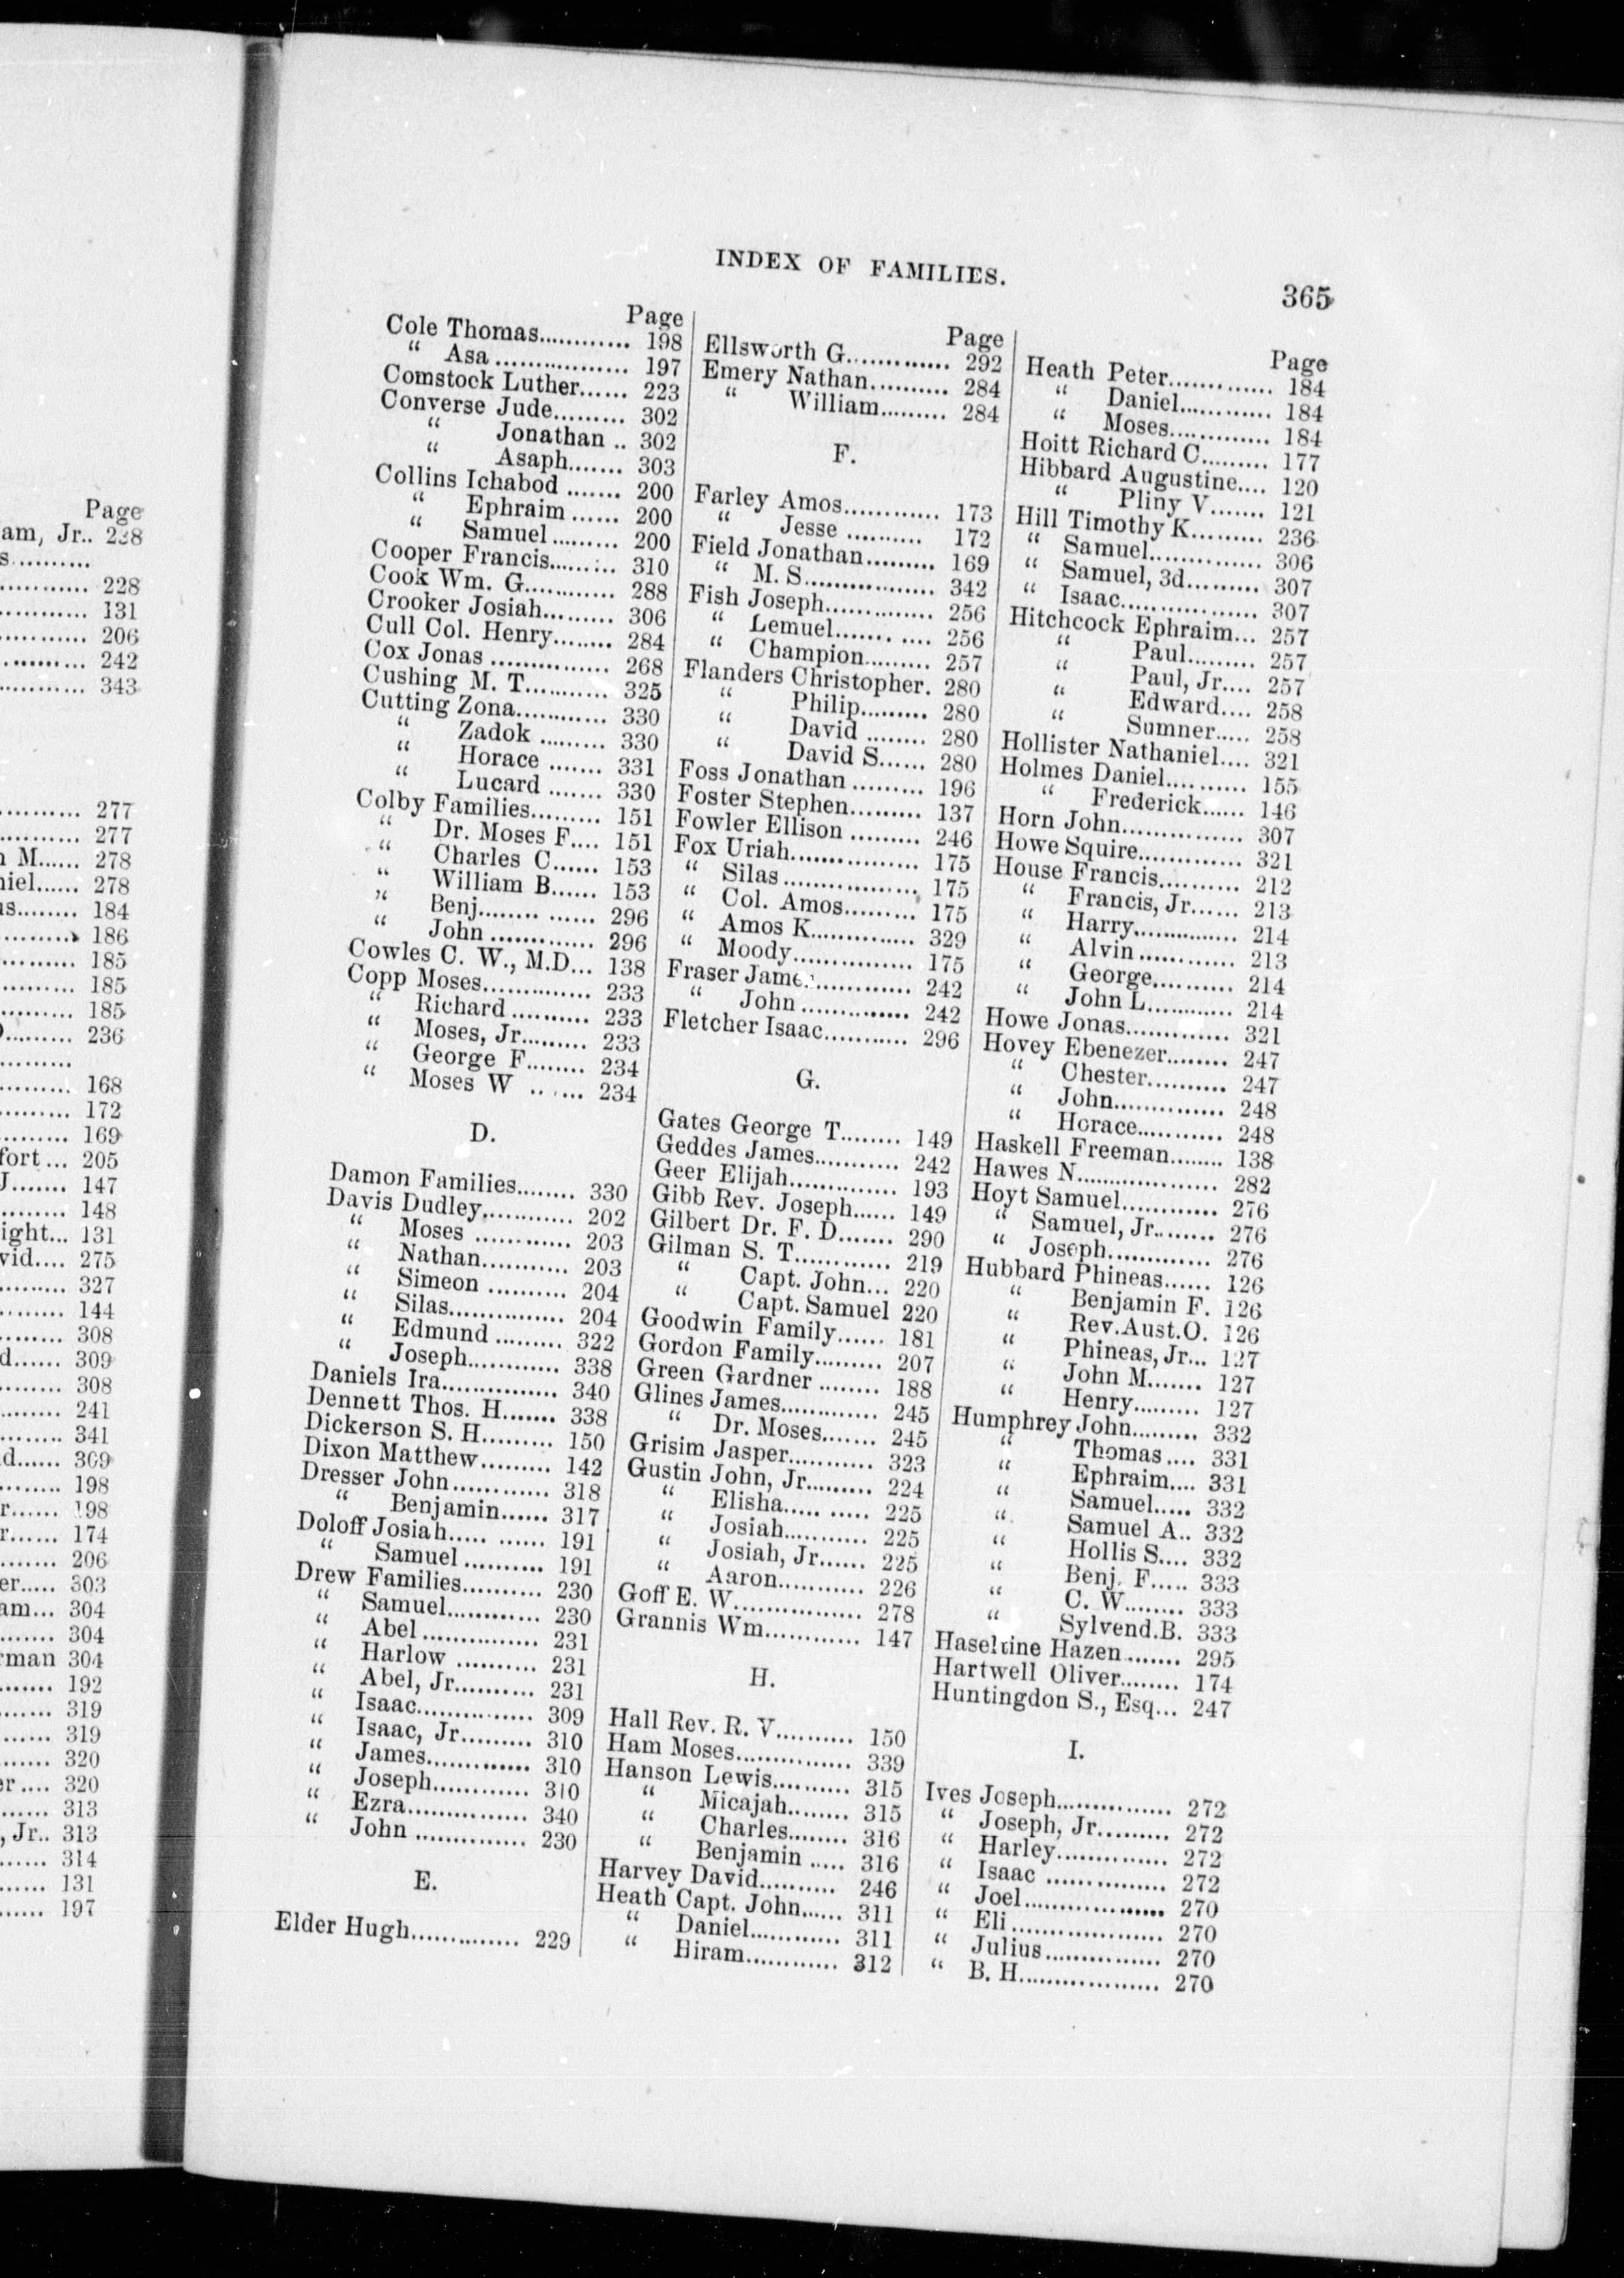 Page
am, Jr.. 228
s..........
............ 228
............ 131
............ 206
............ 242
............ 343
.......... 277
.......... 277
M...... 278
niel...... 278
us........ 184
.......... 186
.......... 185
.......... 185
.......... 185
......... 236
..........
.......... 168
......... 172
......... 169
fort... 205
J....... 147
......... 148
ight... 131
vid.... 275
......... 327
......... 144
......... 308
d...... 309
......... 308
......... 241
......... 341
d...... 309
......... 198
r...... 198
r...... 174
........ 206
er..... 303
am... 304
....... 304
rman 304
....... 192
....... 319
...... 319
....... 320
er.... 320
...... 313
, Jr.. 313
...... 314
...... 131
...... 197
INDEX OF FAMILIES.
365
Page
Cole Thomas............ 198
“ Asa ................ 197
Comstock Luther...... 223
Converse Jude......... 302
“ Jonathan .. 302
“ Asaph....... 303
Collins Ichabod ....... 200
“ Ephraim ...... 200
“ Samuel ......... 200
Cooper Francis......... 310
Cook Wm. G............ 288
Crooker Josiah......... 306
Cull Col. Henry........ 284
Cox Jonas ............... 268
Cushing M. T........... 325
Cutting Zona............ 330
“ Zadok ......... 330
“ Horace ....... 331
“ Lucard ....... 330
Colby Families......... 151
“ Dr. Moses F.... 151
“ Charles C...... 153
“ William B...... 153
“ Benj............... 296
“ John ............. 296
Cowles C. W., M.D... 138
Copp Moses.............. 233
“ Richard .......... 233
“ Moses, Jr......... 233
“ George F........ 234
“ Moses W ...... 234
D.
Damon Families........ 330
Davis Dudley............ 202
“ Moses ............ 203
“ Nathan........... 203
“ Simeon .......... 204
“ Silas............... 204
“ Edmund ......... 322
“ Joseph............ 338
Daniels Ira............... 340
Dennett Thos. H....... 338
Dickerson S. H......... 150
Dixon Matthew......... 142
Dresser John............. 318
“ Benjamin...... 317
Doloff Josiah..... ...... 191
“ Samuel .......... 191
Drew Families.......... 230
“ Samuel............ 230
“ Abel ............... 231
“ Harlow .......... 231
“ Abel, Jr.......... 231
“ Isaac............... 309
“ Isaac, Jr......... 310
“ James............. 310
“ Joseph............ 310
“ Ezra............... 340
“ John .............. 230
E.
Elder Hugh.............. 229
Page
Ellsworth G............. 292
Emery Nathan.......... 284
“ William......... 284
F.
Farley Amos............ 173
“ Jesse .......... 172
Field Jonathan......... 169
“ M. S................. 342
Fish Joseph.............. 256
“ Lemuel....... .... 256
“ Champion......... 257
Flanders Christopher. 280
“ Philip......... 280
“ David ........ 280
“ David S...... 280
Foss Jonathan ......... 196
Foster Stephen......... 137
Fowler Ellison ......... 246
Fox Uriah................ 175
“ Silas ................. 175
“ Col. Amos......... 175
“ Amos K............. 329
“ Moody............... 175
Fraser James............ 242
“ John .............. 242
Fletcher Isaac........... 296
G.
Gates George T........ 149
Geddes James........... 242
Geer Elijah.............. 193
Gibb Rev. Joseph...... 149
Gilbert Dr. F. D....... 290
Gilman S. T............ 219
“ Capt. John... 220
“ Capt. Samuel 220
Goodwin Family...... 181
Gordon Family......... 207
Green Gardner ........ 188
Glines James............. 245
“ Dr. Moses....... 245
Grisim Jasper........... 323
Gustin John, Jr......... 224
“ Elisha..... ..... 225
“ Josiah........... 225
“ Josiah, Jr...... 225
“ Aaron........... 226
Goff E. W................ 278
Grannis Wm............ 147
H.
Hall Rev. R. V.......... 150
Ham Moses............... 339
Hanson Lewis.......... 315
“ Micajah........ 315
“ Charles........ 316
“ Benjamin ..... 316
Harvey David.......... 246
Heath Capt. John...... 311
“ Daniel............ 311
“ Hiram............ 312
Page
Heath Peter............. 184
“ Daniel............ 184
“ Moses............. 184
Hoitt Richard C......... 177
Hibbard Augustine.... 120
“ Pliny V....... 121
Hill Timothy K......... 236
“ Samuel............... 306
“ Samuel, 3d.......... 307
“ Isaac.................. 307
Hitchcock Ephraim... 257
“ Paul......... 257
“ Paul, Jr.... 257
“ Edward.... 258
“ Sumner..... 258
Hollister Nathaniel.... 321
Holmes Daniel.......... 155
“ Frederick...... 146
Horn John............... 307
Howe Squire............. 321
House Francis.......... 212
“ Francis, Jr...... 213
“ Harry.............. 214
“ Alvin ............ 213
“ George........... 214
“ John L............ 214
Howe Jonas............. 321
Hovey Ebenezer........ 247
“ Chester.......... 247
“ John.............. 248
“ Horace........... 248
Haskell Freeman........ 138
Hawes N.................. 282
Hoyt Samuel............ 276
“ Samuel, Jr........ 276
“ Joseph............. 276
Hubbard Phineas...... 126
“ Benjamin F. 126
“ Rev. Aust. O. 126
“ Phineas, Jr... 127
“ John M....... 127
“ Henry......... 127
Humphrey John......... 332
“ Thomas.... 331
“ Ephraim.... 331
“ Samuel..... 332
“ Samuel A.. 332
“ Hollis S.... 332
“ Benj. F..... 333
“ C. W........ 333
“ Sylvend. B. 333
Haseltine Hazen ....... 295
Hartwell Oliver........ 174
Huntingdon S., Esq... 247
I.
Ives Joseph............... 272
“ Joseph, Jr......... 272
“ Harley.............. 272
“ Isaac ................ 272
“ Joel.................. 270
“ Eli ................... 270
“ Julius ............... 270
“ B. H.................. 270